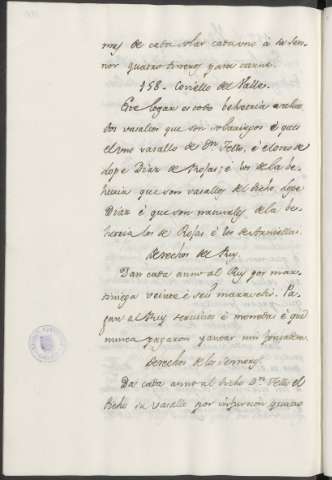 mes de cada solar cada uno à su sen-
nor quatro tovos para carne.
158. Coviello del Valle.
Este logar es todo behetria ...
dos vasallos que son solariegos é que es
el uno vasallo de Dn. Tello, é el otro de
Lope Diaz de Rojas; é los de la be-
hetria que son vasallos del dicho Lope
Diaz é que son naturales de la be-
hetria los de Rojas é los de
Derechos del Rey.
Dan cada anno al Rey por mar-
tiniega veinte é seis maravedis. Pa-
gan al Rey servicios é monedas é que
nunca pagaron yantar nin fonsadera.
Derechos de los Sennores.
Da cada anno al dicho Dn. Tello el
dicho su vasallo por infurcion quatro